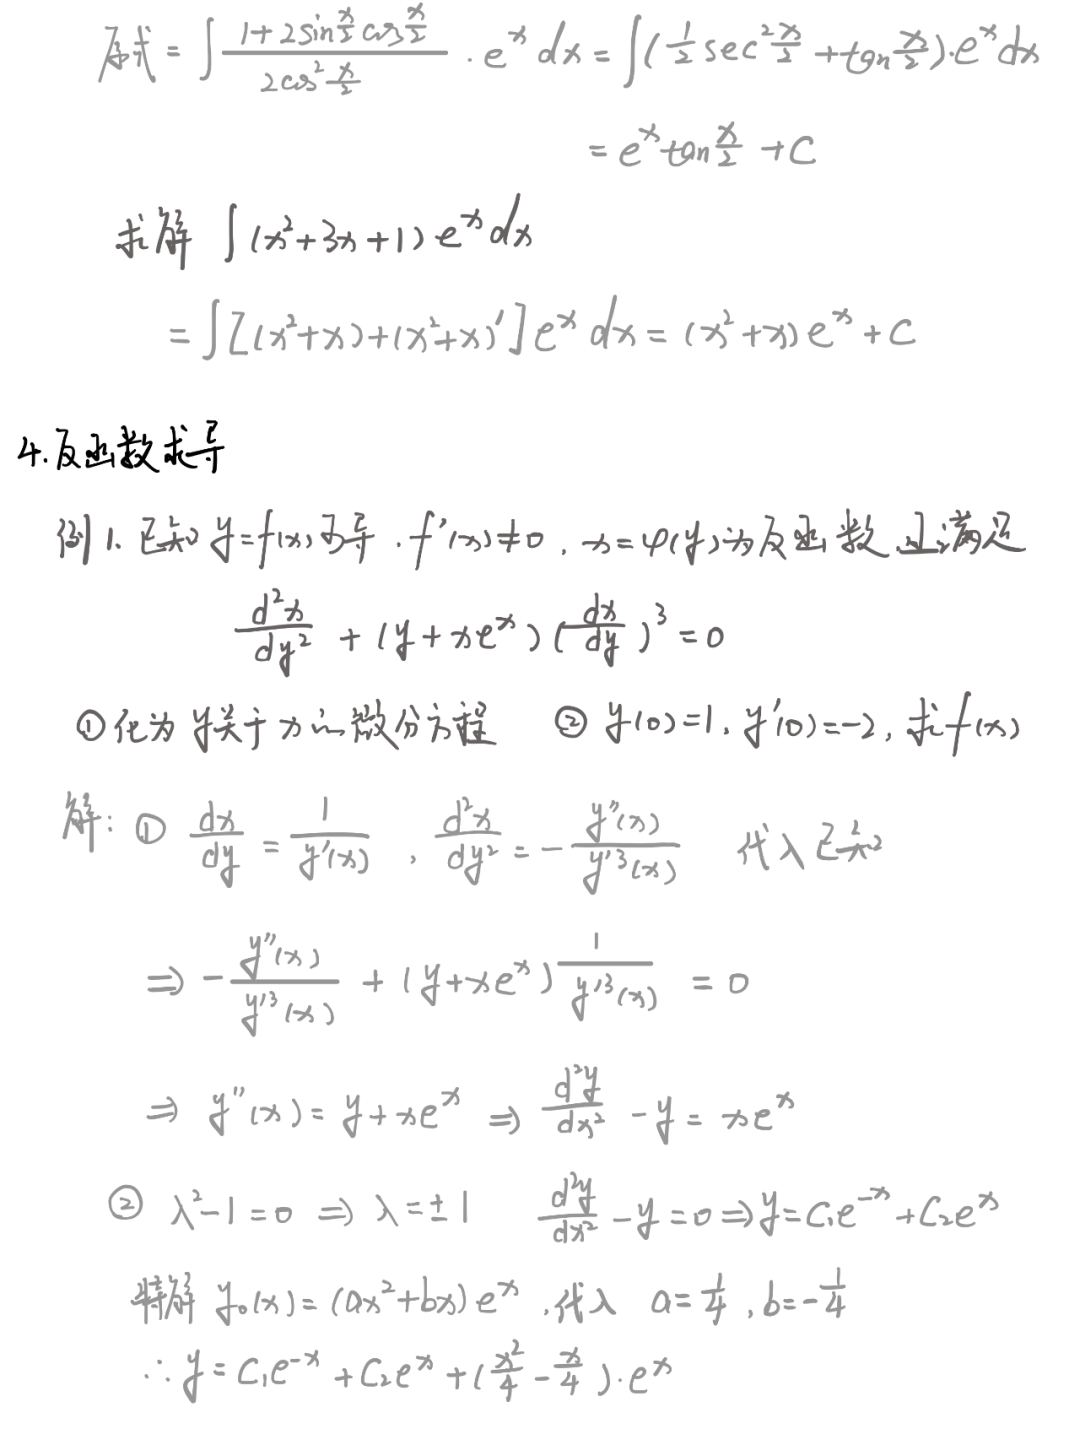 原式 = ∫ (1+2sin x/2 cos x/2)/(2cos² x/2) · eˣ dx = ∫(1/2 sec² x/2 + tan x/2)·eˣdx
= eˣtan x/2 + C
求解 ∫(x²+3x+1)eˣdx
= ∫[(x²+x)+(x²+x)']eˣ dx = (x²+x)eˣ + C
4.反函数求导
例1. 已知 y=f(x)可导. f'(x)≠0, x=φ(y)为反函数,且满足
d²x/dy² + (y+xeˣ)(dx/dy)³ = 0
①化为 y关于x的微分方程 ② y(0)=1, y'(0)=-2, 求f(x)
解: ① dx/dy = 1/y'(x), d²x/dy² = -y''(x)/y'³(x) 代入已知
⇒ -y''(x)/y'³(x) + (y+xeˣ) 1/y'³(x) = 0
⇒ y''(x) = y+xeˣ ⇒ d²y/dx² - y = xeˣ
② λ²-1=0 ⇒ λ=±1 d²y/dx² - y = 0 ⇒ y=C₁e⁻ˣ+C₂eˣ
特解 y₀(x) = (ax²+bx)eˣ, 代入 a=1/4, b=-1/4
∴ y = C₁e⁻ˣ + C₂eˣ + (x²/4 - x/4)·eˣ